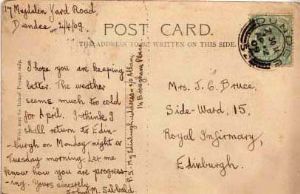 17 Magdalen Yard Road
Dundee 2/4/09.
POST CARD.
THE ADDRESS TO BE WRITTEN ON THIS SIDE.
I hope you are keeping
better. The weather
seems much too cold
for April. I think I
shall return to Edin-
burgh on Monday-night or
Tuesday morning. Let me
know how you are progres-
sing. Yours sincerely
M. Sibbald
P.S. My Edinburgh address is
Mrs. J. G. Bruce,
Side-Ward, 15,
Royal Infirmary,
Edinburgh.
DUNDEE